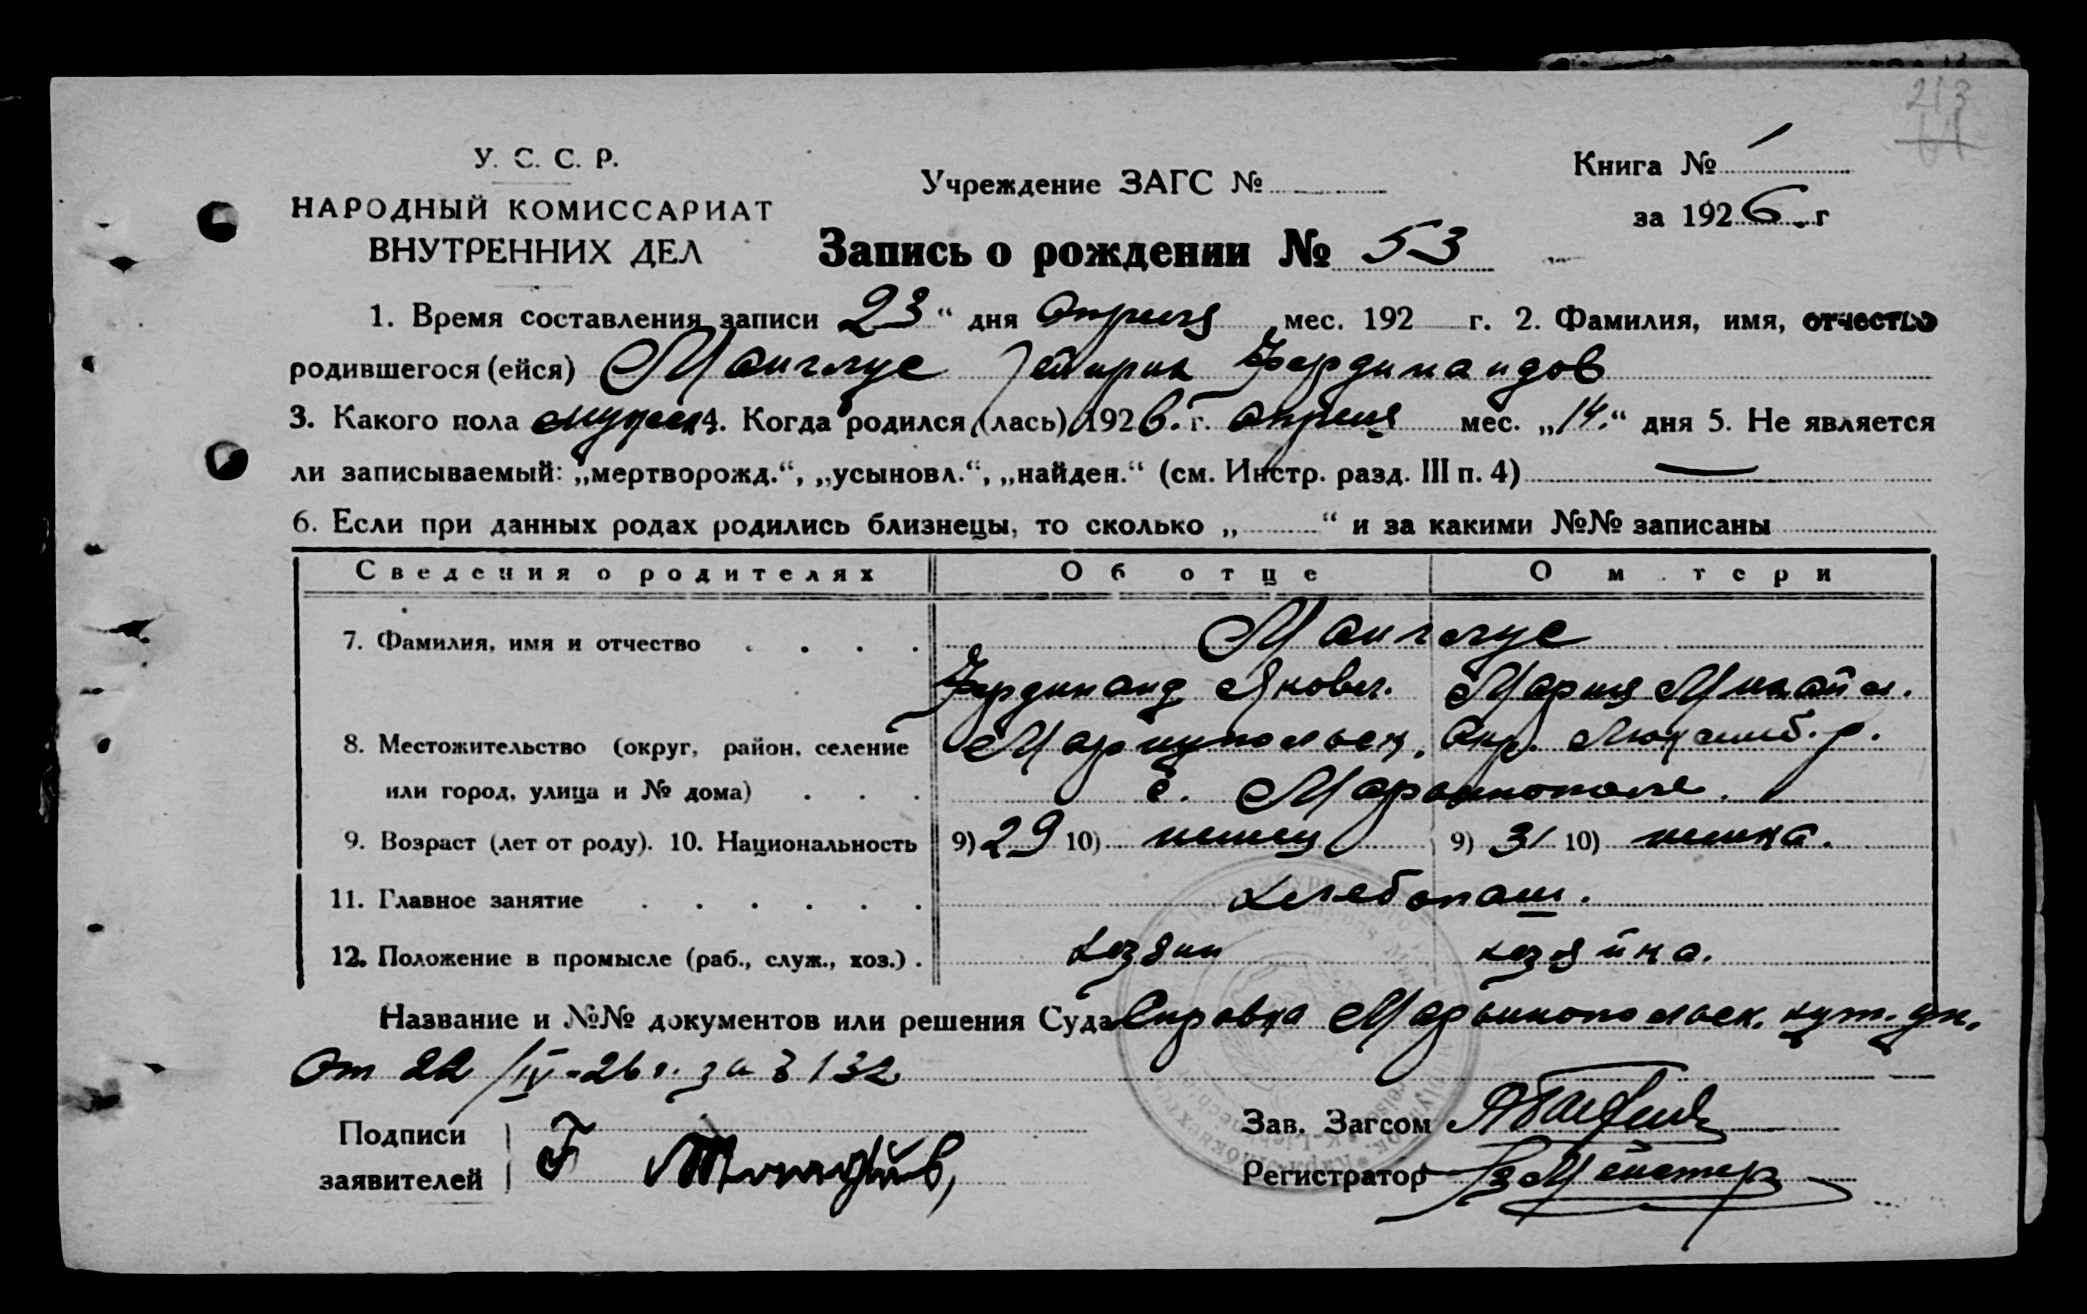 213
У. С. С. Р.
НАРОДНЫЙ КОМИССАРИАТ
ВНУТРЕННИХ ДЕЛ
Учреждение ЗАГС №
Книга № 1
за 1926 г
Запись о рождении № 53
1. Время составления записи 23 “ дня Апреля мес. 192 г. 2. Фамилия, имя, отчество
родившегося (ейся) Манглус Гейнрих Фердинандов
3. Какого пола мужск 4. Когда родился (лась) 1926. г. апреля мес. „14.“ дня 5. Не является
ли записываемый: „мертворожд.“, „усыновл.“, „найден.“ (см. Инстр. разд. III п. 4) —
6. Если при данных родах родились близнецы, то сколько „ “ и за какими №№ записаны
Сведения о родителях Об отце О м тери
7. Фамилия, имя и отчество . . . . Манглус
Фердинанд Яковл. Мария Михайл.
8. Местожительство (округ, район, селение Мариупольск. Окр. Люксемб. р.
или город, улица и № дома) . . . с. Марьинополе.
9. Возраст (лет от роду). 10. Национальность 9) 29 10) немец 9) 31 10) немка.
11. Главное занятие . . . . . . хлебопаш.
12. Положение в промысле (раб., служ., хоз.) . хозяин хозяйка.
Название и №№ документов или решения Суда Справка Марьинопольск.
От 22/IV-26 г. за 132
Подписи
заявителей F
Зав. Загсом
Регистратор Мейстер